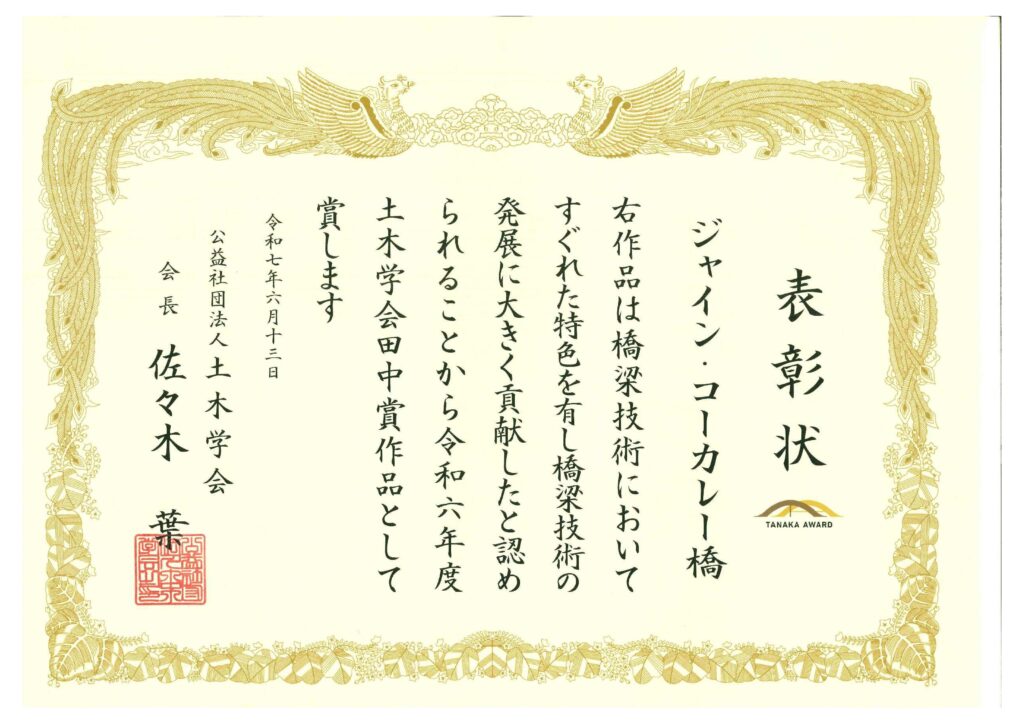 表彰状
TANAKA AWARD
ジャイン・コーカレー橋
右作品は橋梁技術において
すぐれた特色を有し橋梁技術の
発展に大きく貢献したと認め
られることから令和六年度
土木学会田中賞作品として
賞します
令和七年六月十三日
公益社団法人 土木学会
会長 佐々木 葉